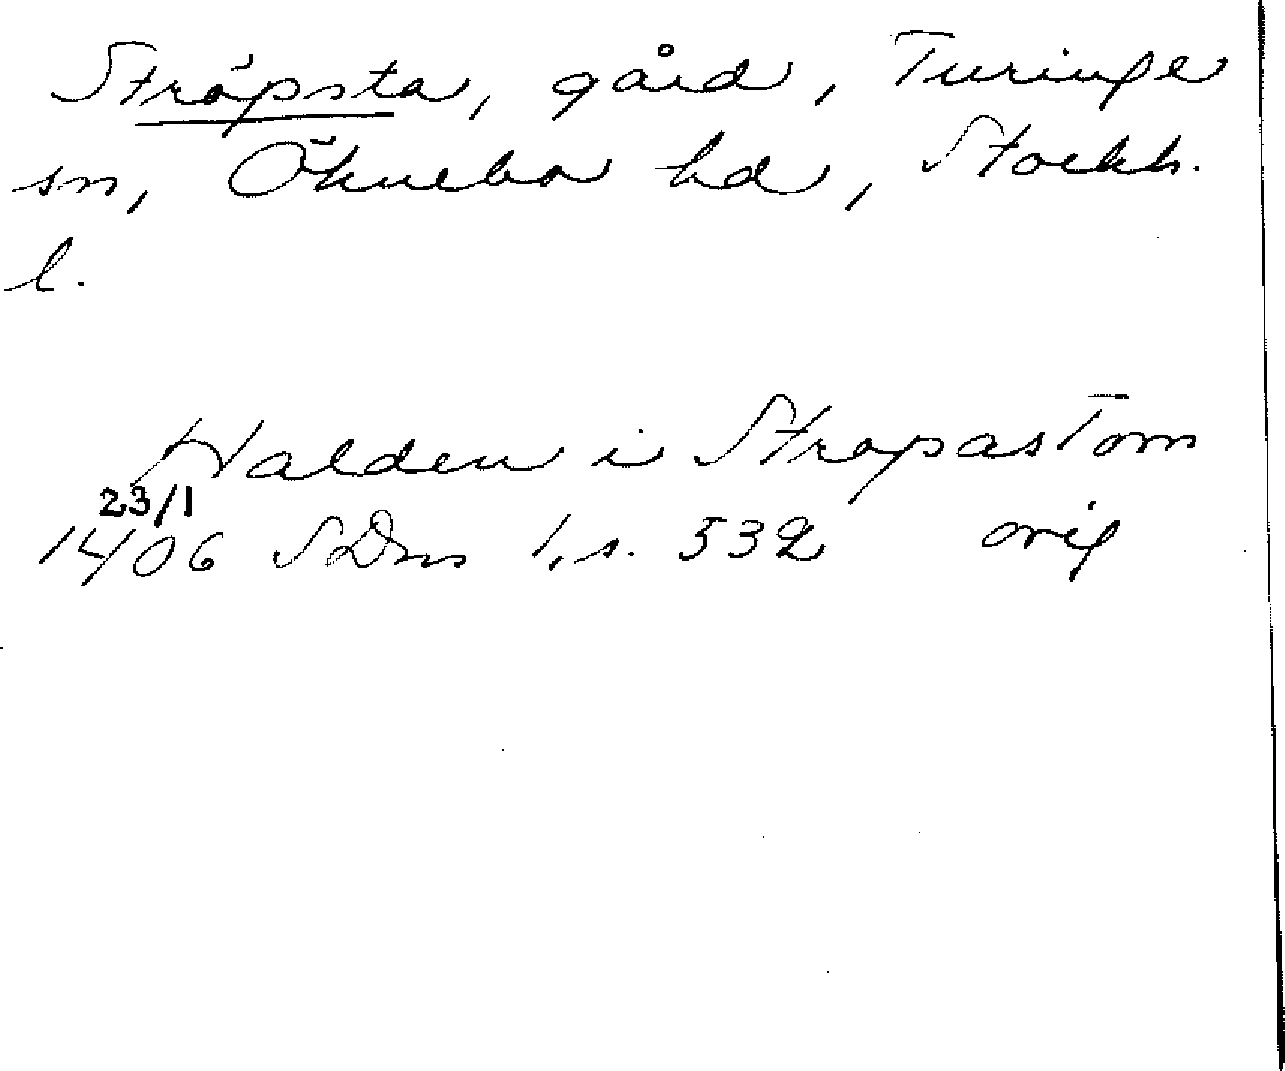 Ströpsta, gård, Turinge
sn, Öknebo hd, Stockh.
l.
Halden i Stropastom
23/1
1406 SDns 1, s. 532 orig